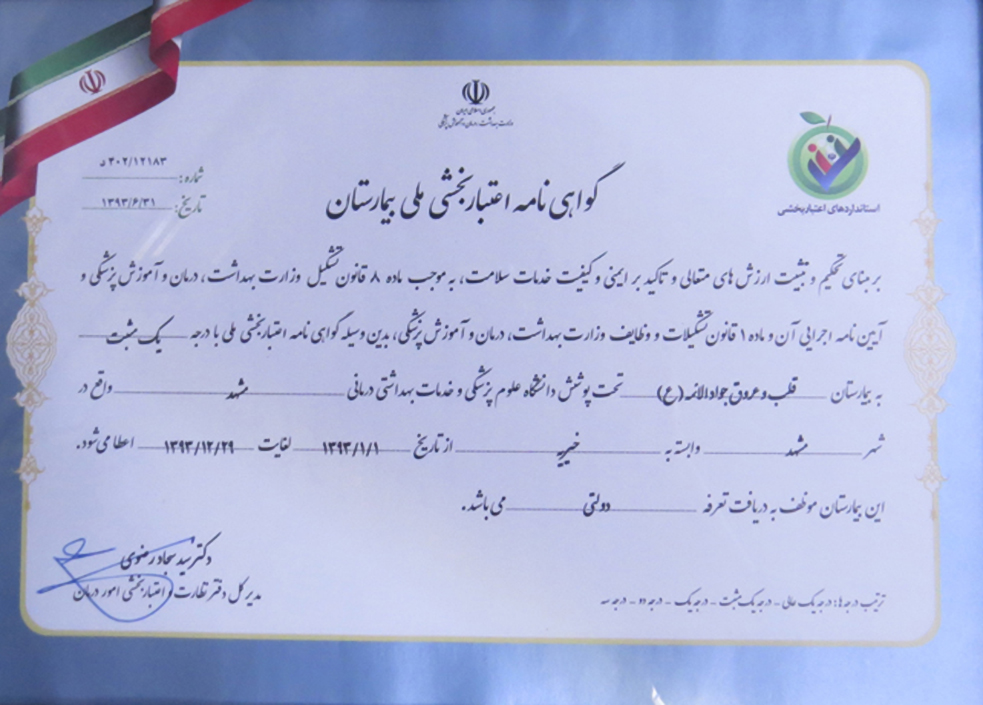 جمهوری اسلامی ایران
وزارت بهداشت، درمان و آموزش پزشکی
استانداردهای اعتباربخشی
شماره: ۴۰۲/۱۲۱۸۳ د
تاریخ: ۱۳۹۳/۶/۳۱
گواهی نامه اعتباربخشی ملی بیمارستان
بر مبنای تحکیم و تثبیت ارزش های متعالی و تاکید بر ایمنی و کیفیت خدمات سلامت، به موجب ماده ۸ قانون تشکیل وزارت بهداشت، درمان و آموزش پزشکی و
آیین نامه اجرایی آن و ماده ۱ قانون تشکیلات و وظایف وزارت بهداشت، درمان و آموزش پزشکی، بدین وسیله گواهی نامه اعتباربخشی ملی با درجه یک مثبت
به بیمارستان قلب و عروق جوادالائمه (ع) تحت پوشش دانشگاه علوم پزشکی و خدمات بهداشتی درمانی مشهد واقع در
شهر مشهد وابسته به خیریه از تاریخ ۱۳۹۳/۱/۱ لغایت ۱۳۹۳/۱۲/۲۹ اعطا می شود.
این بیمارستان موظف به دریافت تعرفه دولتی می باشد.
دکتر سید سجاد رضوی
مدیر کل دفتر نظارت و اعتباربخشی امور درمان
ترتیب درجه ها: درجه یک عالی - درجه یک مثبت - درجه یک - درجه دو - درجه سه